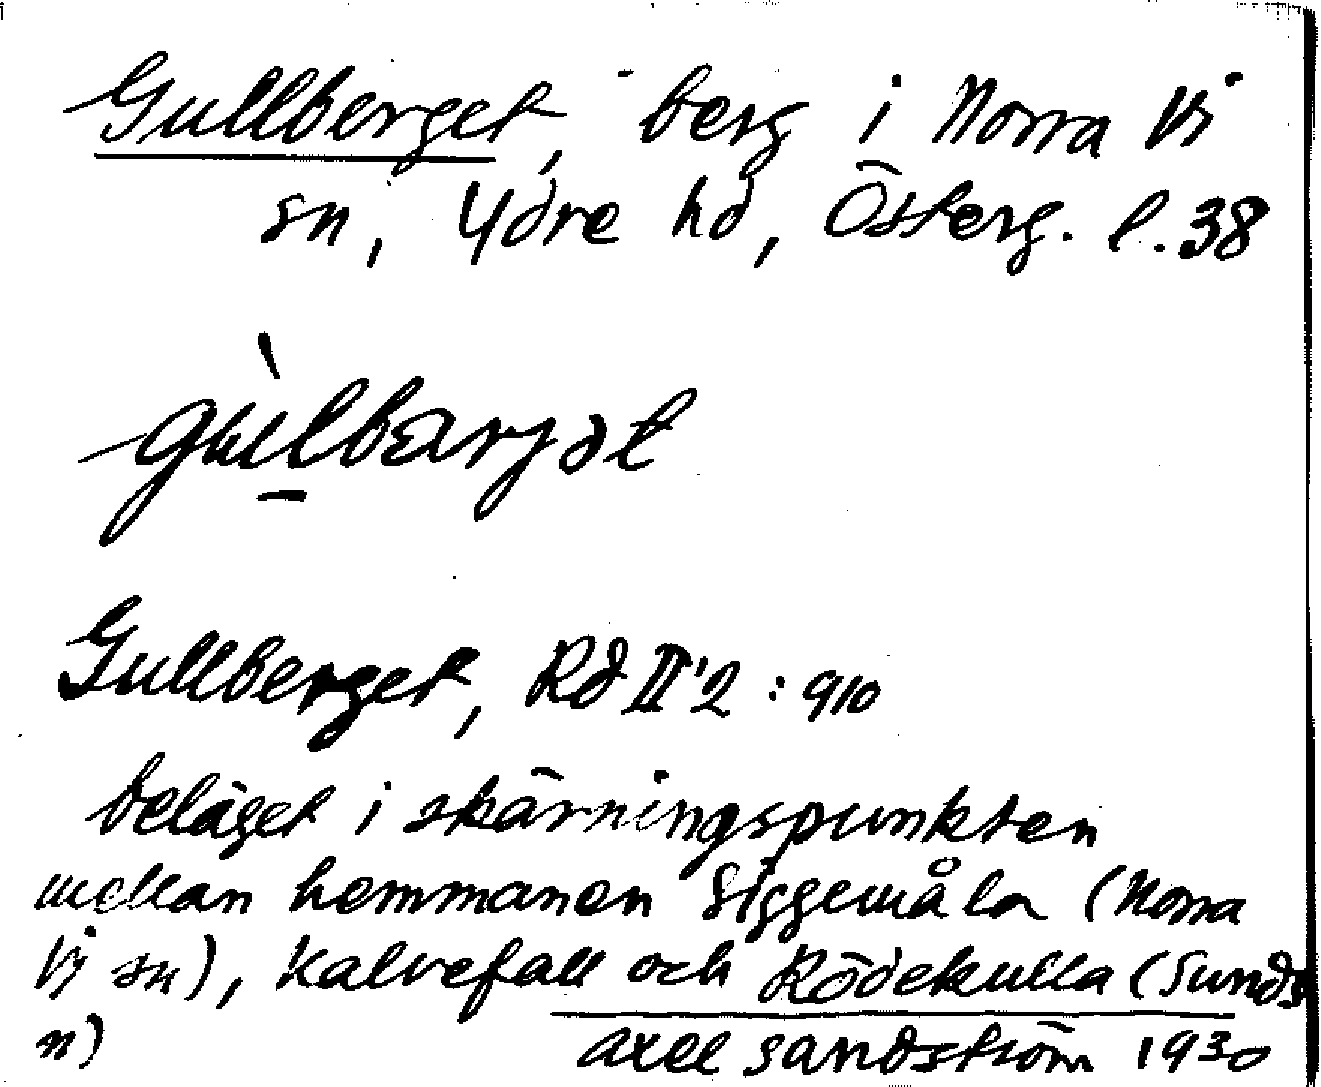 Gullberget, berg i Norra Vi
sn, Ydre hd, Österg. l. 38
gùlbarjət
Gullberget, Rd II'2 : 910
beläget i skärningspunkten
mellan hemmanen Siggemåla (Norra
Vi sn), Kalvefall och Rödekulla (Sunds
n)
Axel Sandström 1930